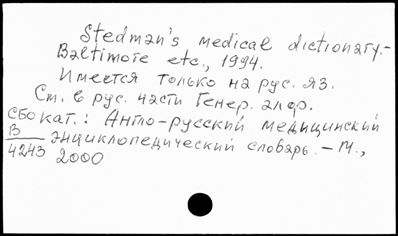 Stedman's medical dictionary.-
Baltimore etc., 1994.
Имеется только на рус. яз.
См. в рус. части Генер. алф.
кат.: Англо-русский медицинский
энциклопедический словарь. - М.,
2000
СБО
В
4243